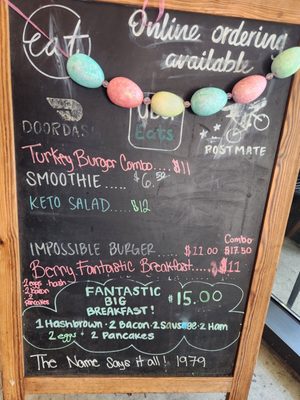 eat
Online ordering
available
DOORDASH
Uber
Eats
POSTMATE
Turkey Burger Combo.....$11
SMOOTHIE.....$6.50
KETO SALAD.....$12
Combo
IMPOSSIBLE BURGER........$11.00 $17.50
Berry Fantastic Breakfast.....$11
2 eggs hash
2 Bacon
2
Pancakes
FANTASTIC
BIG
BREAKFAST!
$15.00
1 Hashbrown · 2 Bacon · 2 Sausage · 2 Ham
2 eggs + 2 Pancakes
The Name Says it all! 1979